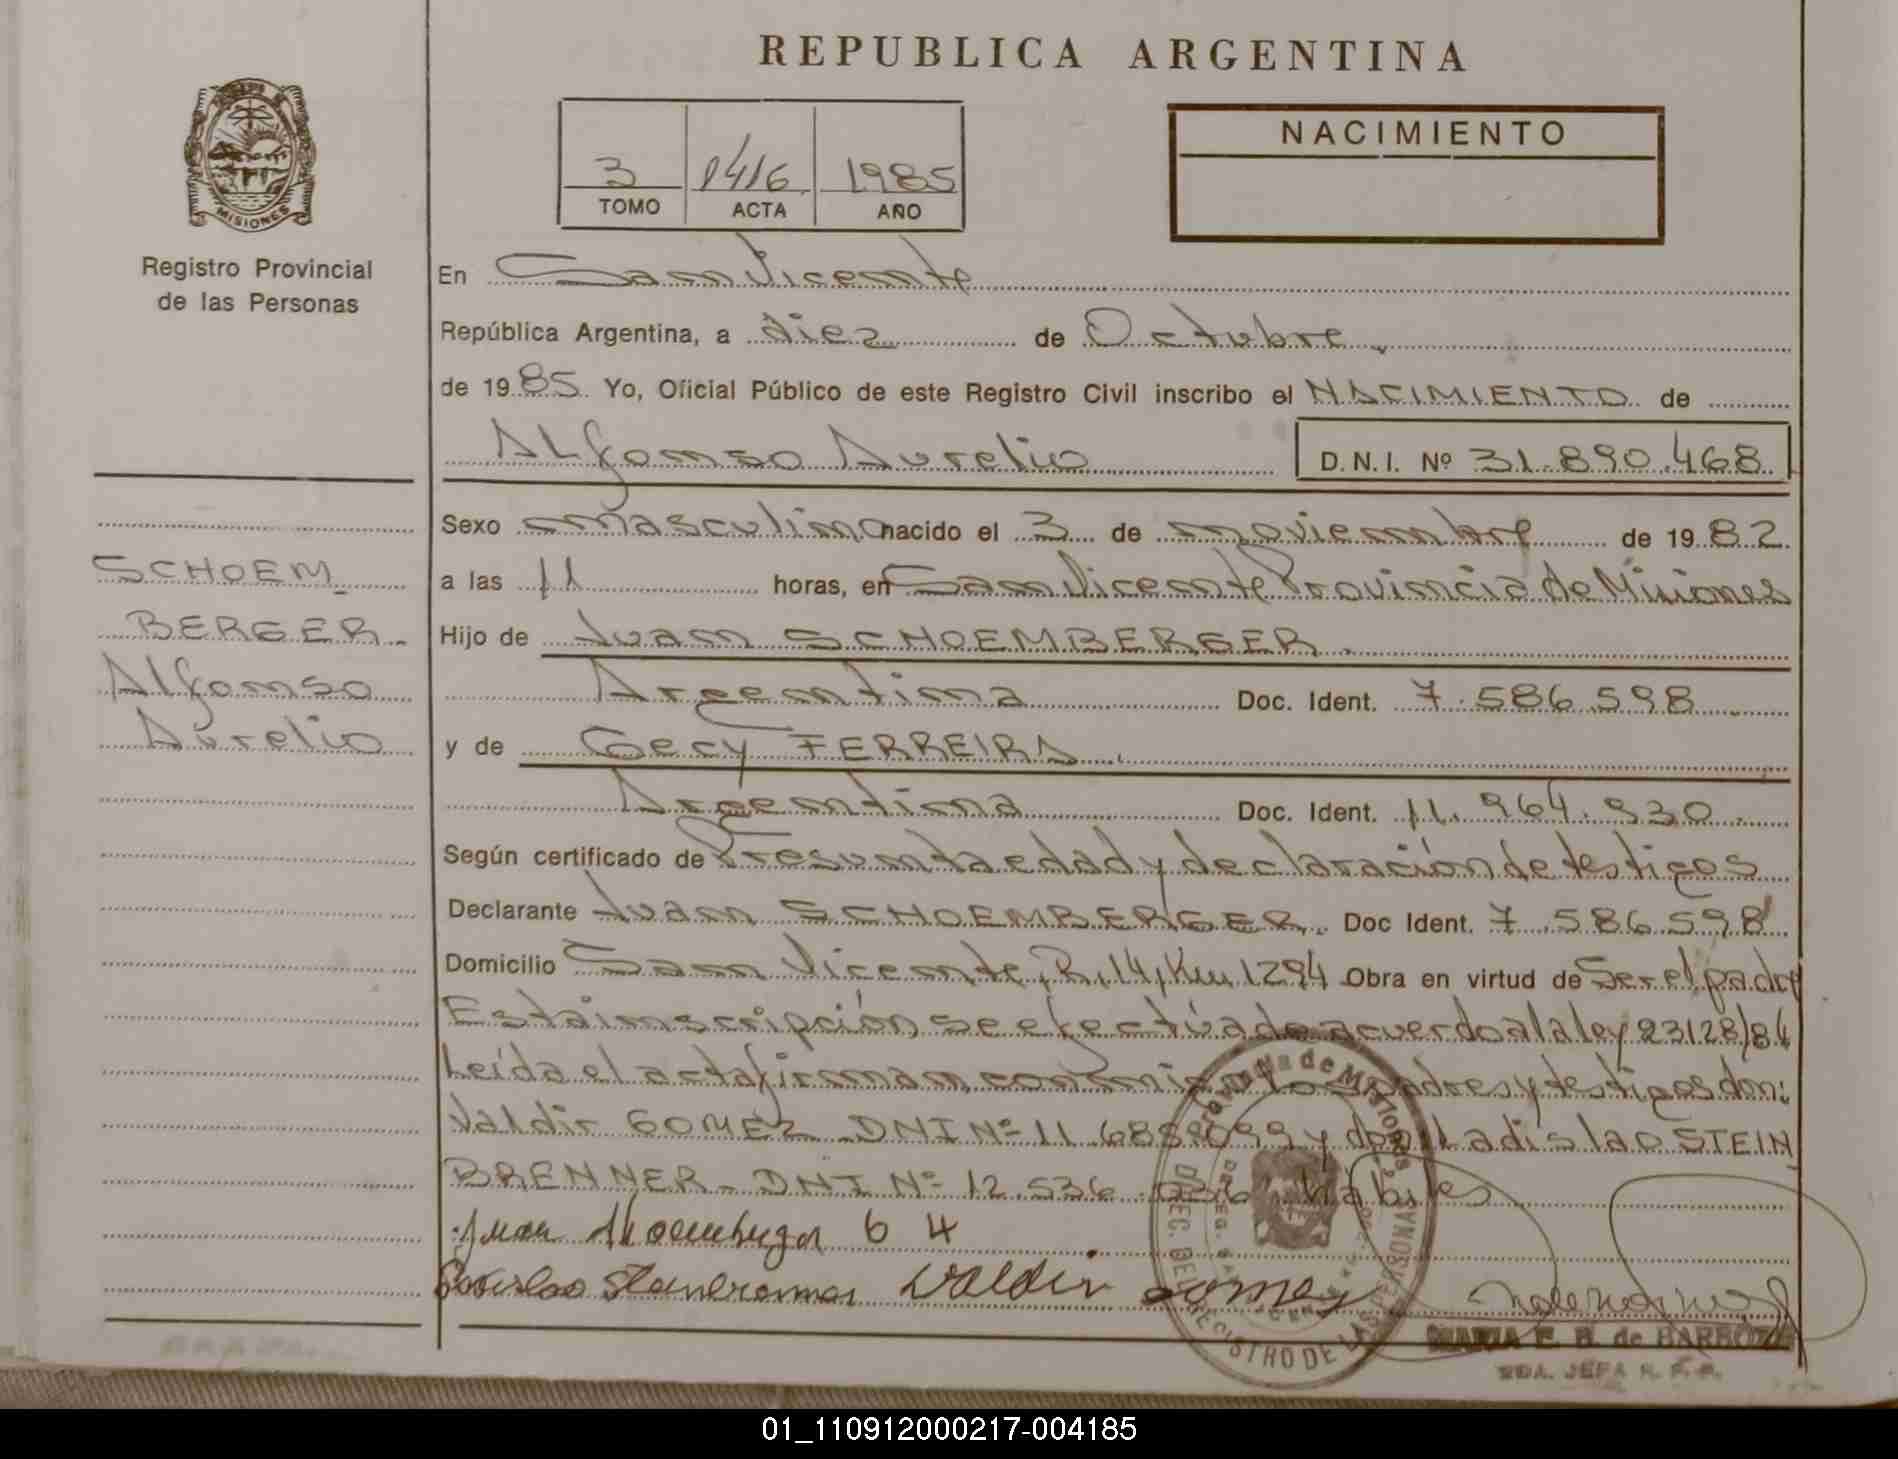 REPUBLICA ARGENTINA
NACIMIENTO
3 1416 1985
TOMO ACTA AÑO
MISIONES
Registro Provincial
de las Personas
En San Vicente
República Argentina, a diez de Octubre.
de 1985 Yo, Oficial Público de este Registro Civil inscribo el NACIMIENTO de
Alfonso Aurelio D.N.I. Nº 31.890.468
SCHOEM_
BERGER_
Alfonso
Aurelio
Sexo masculino nacido el 3 de noviembre de 1982
a las 11 horas, en San Vicente Provincia de Misiones
Hijo de Juan SCHOEMBERGER.
Argentina Doc. Ident. 7.586.598
y de Gecy FERREIRA.
Argentina Doc. Ident. 11.964.930.
Según certificado de Presunta edad y declaración de testigos
Declarante Juan SCHOEMBERGER. Doc Ident. 7.586.598
Domicilio San Vicente, R. 14, Km 1294 Obra en virtud de Ser el padre
Esta inscripción se efectúa de acuerdo a la ley 23128/84
Leída el acta firman conmigo los padres y testigos don:
Valdir GOMEZ DNI Nº 11.689099 y don Ladislao STEIN
BRENNER_ DNI Nº 12.536. habiles
Juan 6 4
Valdir Gomez
Provincia de Misiones
MARIA E. B. de BARBOZA
2DA. JEFA R. P. P.
01_110912000217-004185